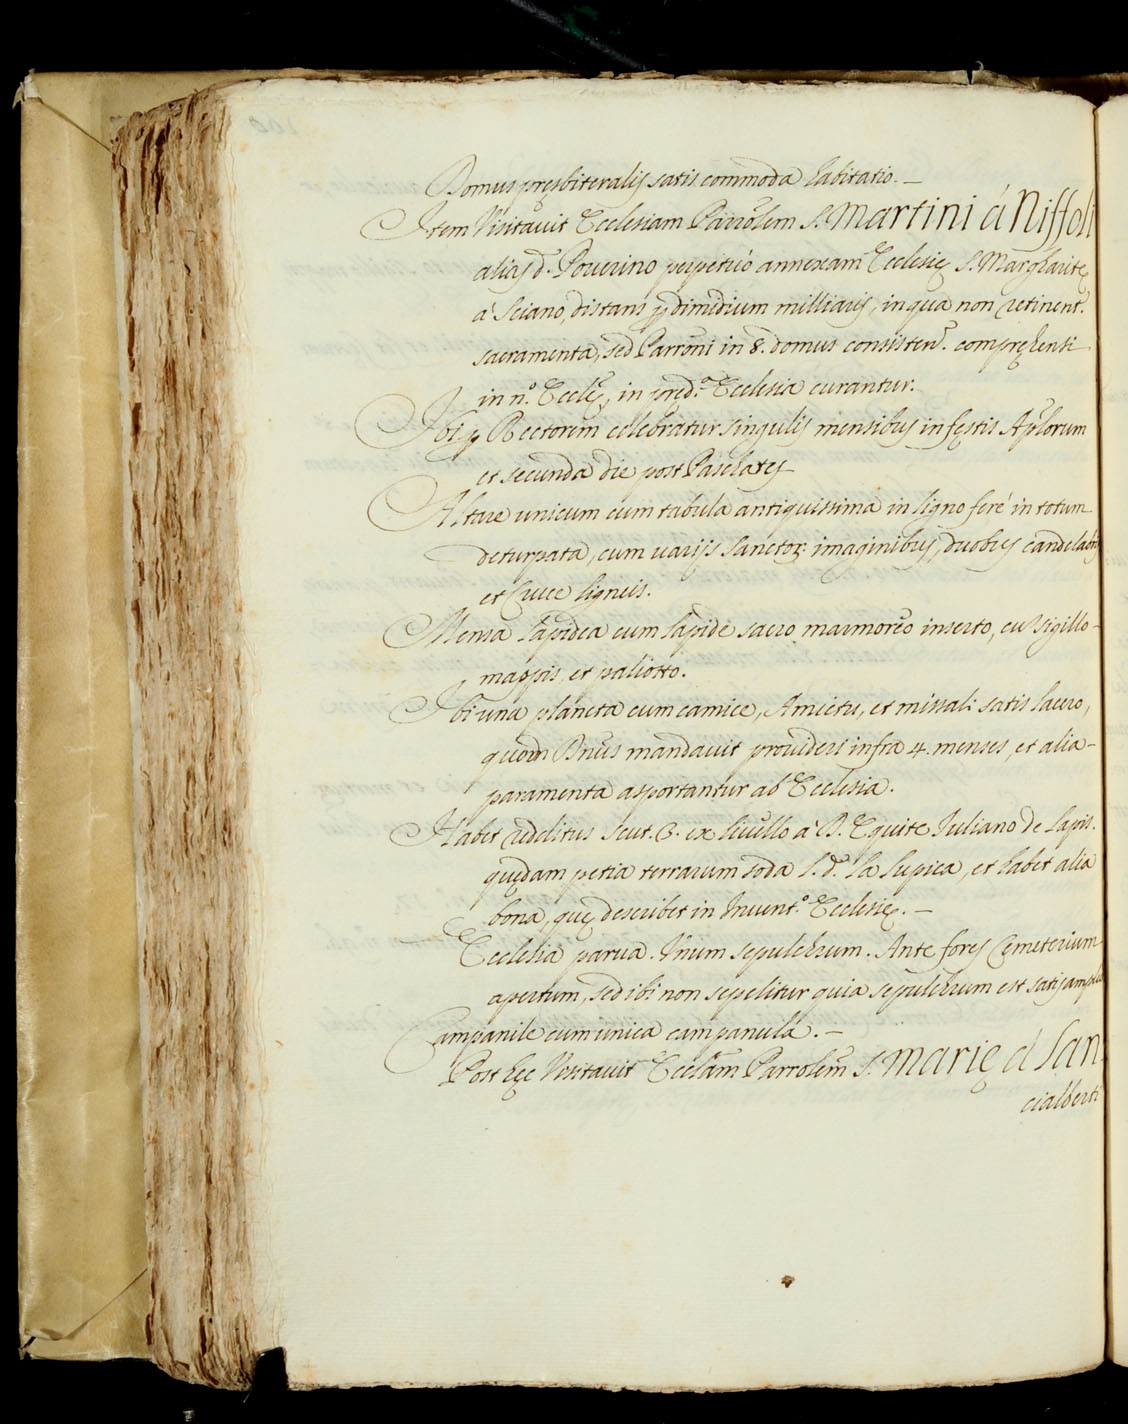 Domus pręsbiteralis satis commoda habitatio. –
Item Visitauit Ecclesiam Parrolem S. Martini à Niffoli
alias d. Pouerino perpetuò annexam Ecclesię S. Margharitę
à Sciano, distans p dimidium milliarij, in qua non retinent.
sacramenta, sed Parroni in 8. domus consisten. compręhensi
in n.º Ecclę, in pred.ª Ecclesia curantur.
Ibi p Rectorem cellebratur singulis mensibus in festis Aplorum
et secunda die post Paschates
Altare unicum cum tabula antiquissima in ligno ferè in totum
deturpata, cum uarijs Sanctor. imaginibus, duobus candelabris
et Cruce ligneis.
Mensa lapidea cum lapide sacro marmoreo inserto, cu sigillo
mappis et paliotto.
Ibi una planeta cum camice, Amictu, et missali satis lacero,
quom Dnus mandauit prouideri infra 4. menses, et alia
paramenta asportantur ab Ecclesia.
Habet redditus scut. 3. ex liuello à D. Equite Iuliano de Lapis.
quędam petia terrarum soda l. d. la Lupica, et habet alia
bona, quę describet in Inuent.º Ecclesię. –
Ecclesia parua. Vnum sepulchrum. Ante fores Cemeterium
apertum, sed ibi non sepelitur quia sepulchrum est satis amplu
Campanile cum unica campanula. –
Post hęc Visitauit Ecclam Parrolem S. Marię a San
cialberti